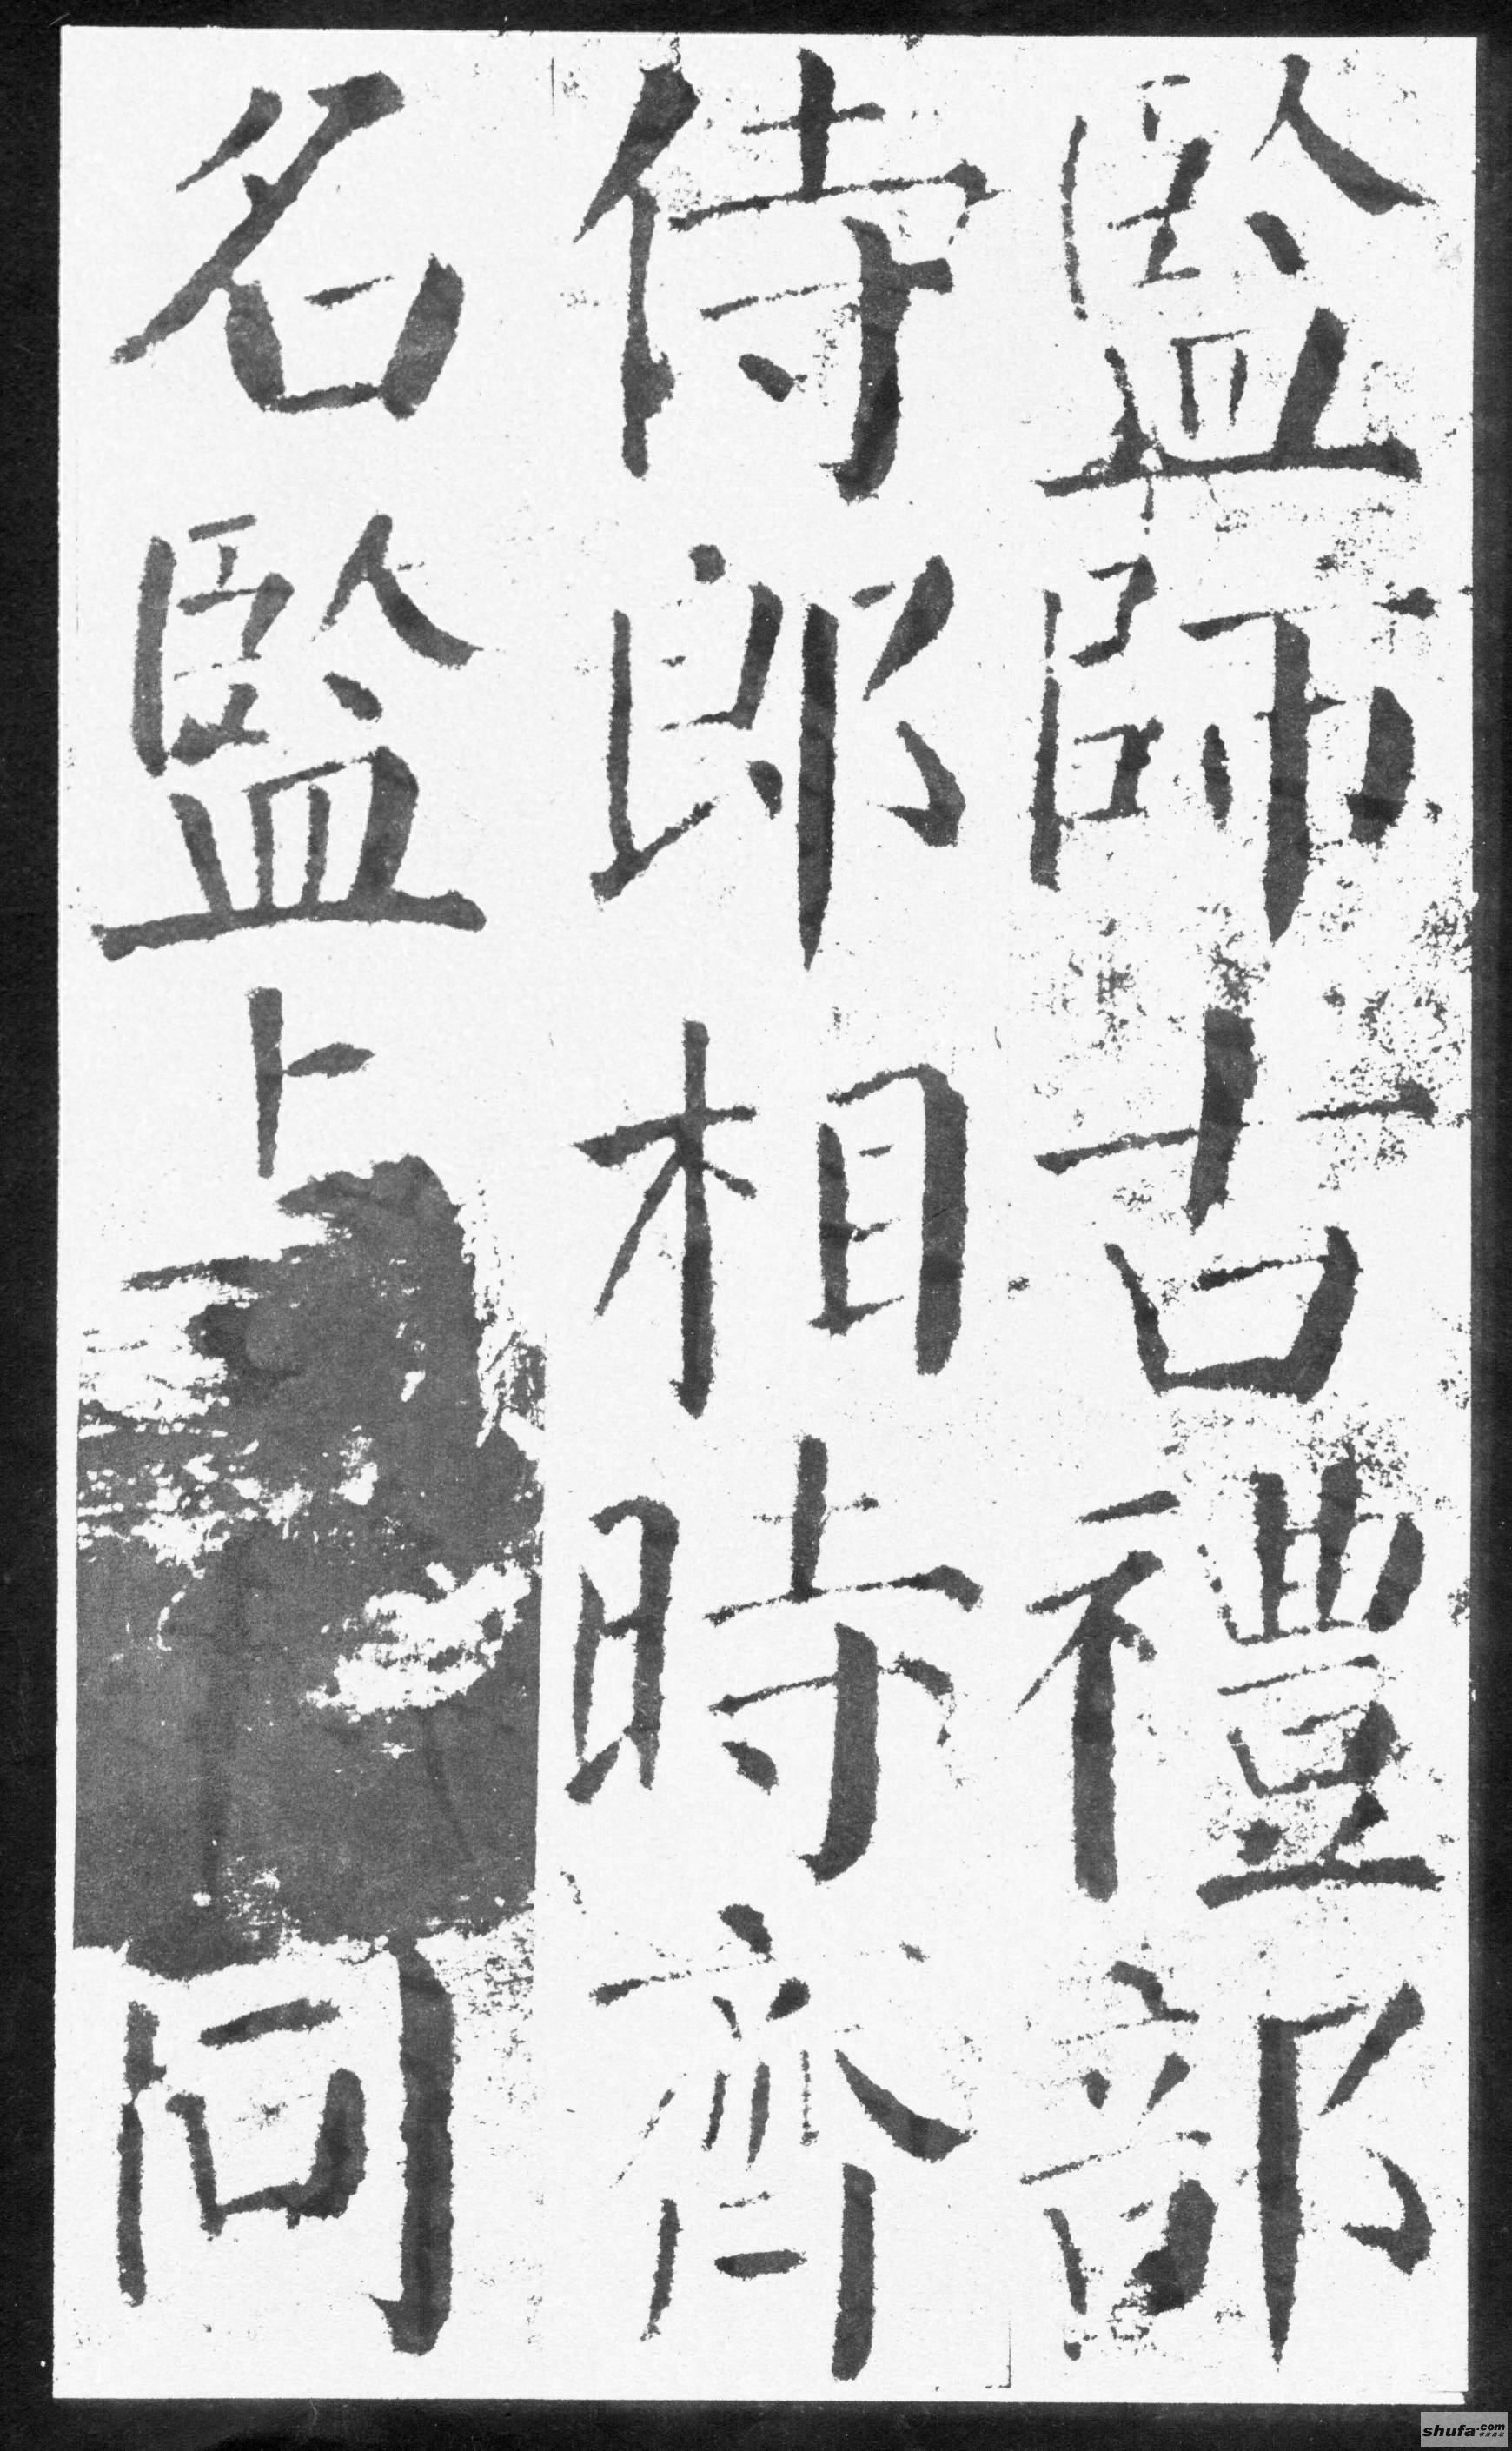 監師古禮部
侍郎相時齊
名監同
shufa.com